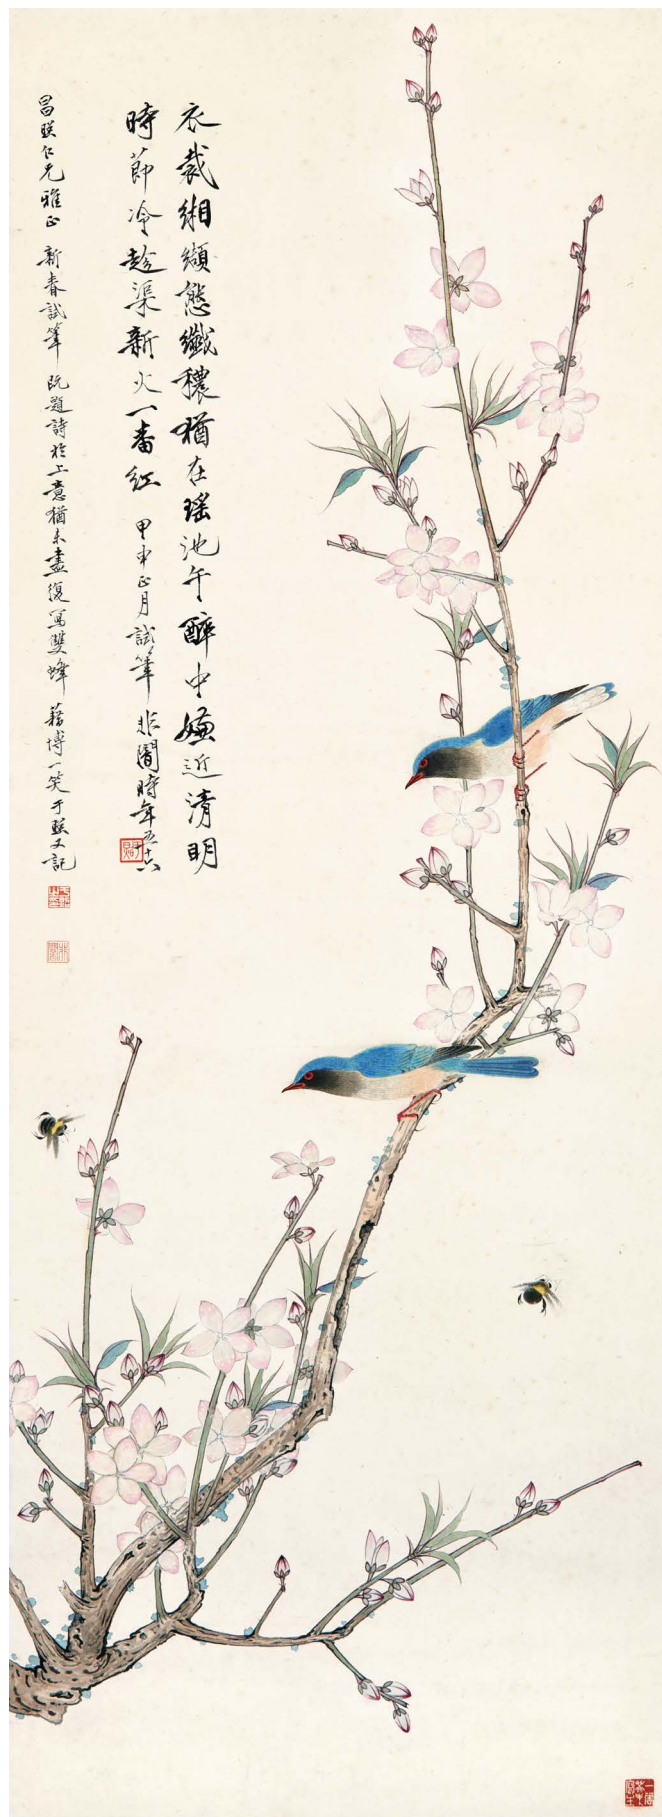 衣裁缃缬态纖穠猶在瑶池午醉中嫌近清明
時節冷趁渠新火一番紅
甲申正月試筆 非闇時年五十六
昌联仁兄雅正 新春試筆 既題詩於上意猶未盡復寫雙蜂 藉博一笑 于照又記